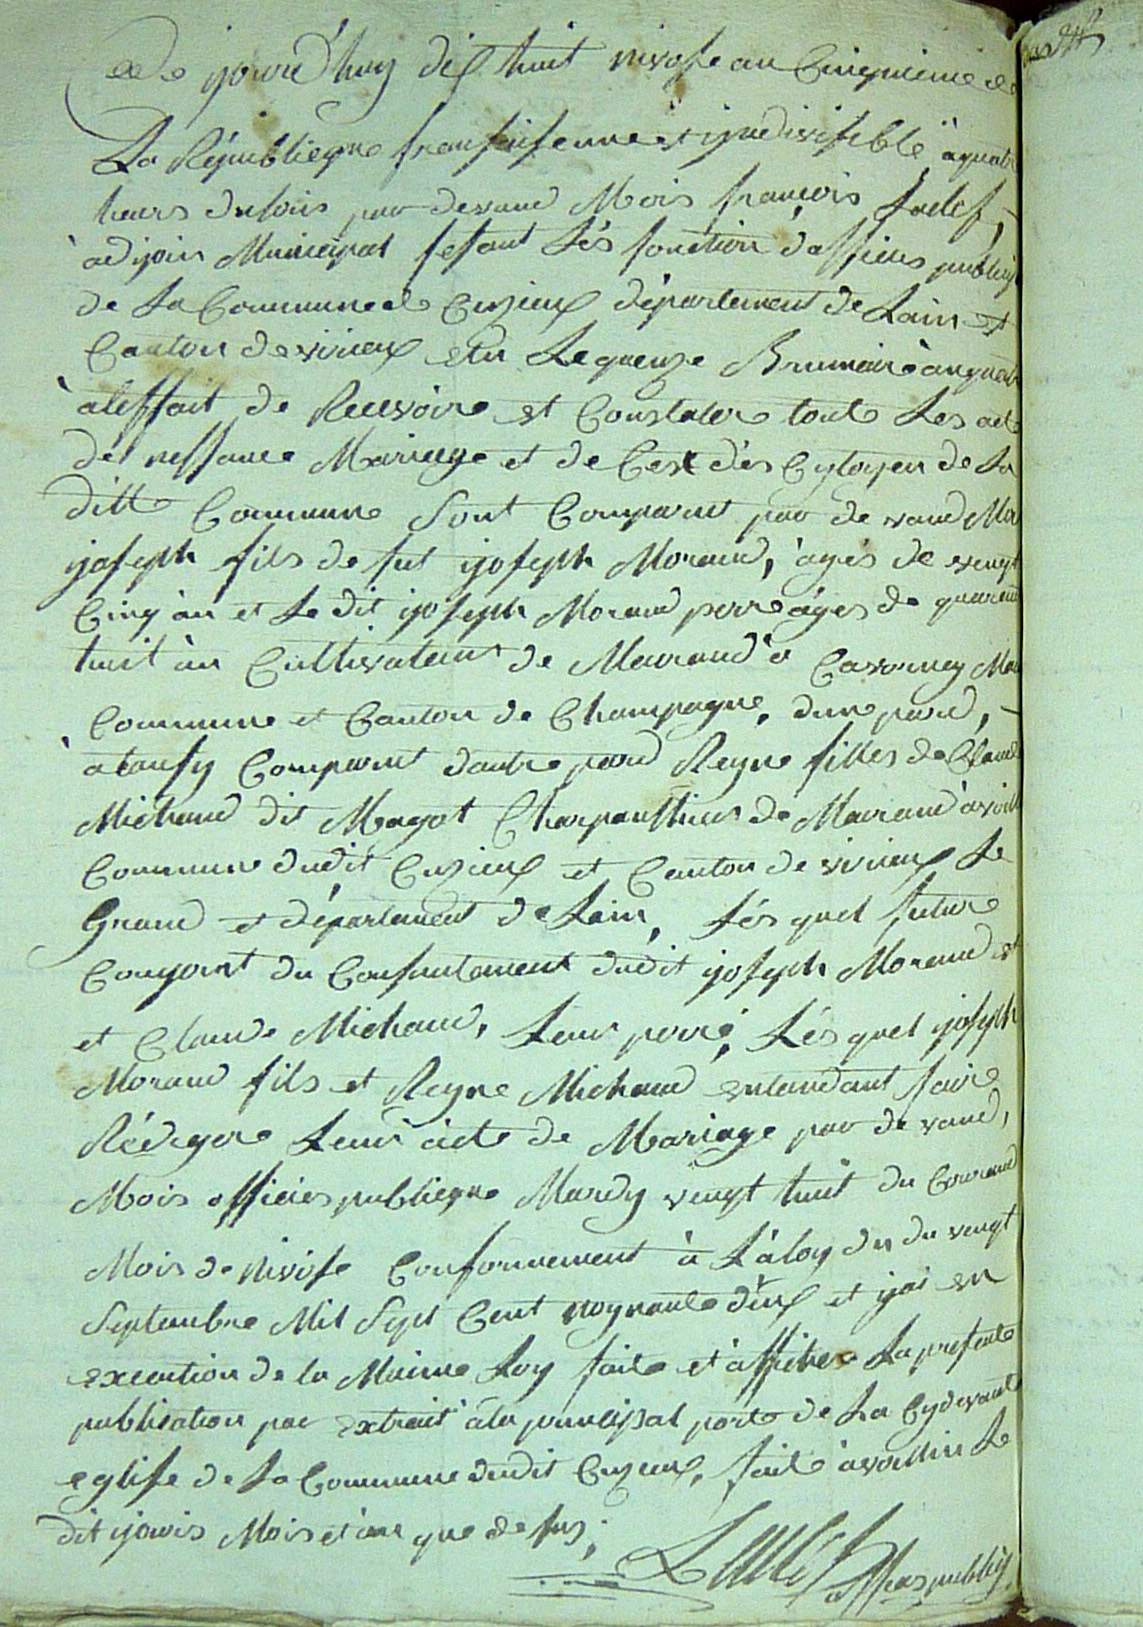 ce jourd'huy dix huit nivose an Cinquieme de
La Républicque fransaisenne et indivisible à quatre
heurs du soirs par devand Mois françois
adjoin Municipal fesant Lés fonction d'officies publicq
de La Commune de Cuzieux département de Lain et
Canton de virieux Le quenze Brumaire an quatre
à leffait de Recevoire et Constater toute Les acte
de nessance Mariage et de des Cytoyen de La
ditte Commune Sont Comparut par de vand Moi
joseph fils de fut joseph Moraud, àgés de vengt
Cinq àn et Le dit joseph Moraud perre àges de quarente
huit àn Cultivateur de Meurand à Cavorney
Commune et Canton de Champagne, dune pard,
à causy Comparut dautre pard Reyne filles de Claude
Michaud dit Magot Charpanthier de Meurand à
Commune dudit Cuzieux et Canton de virieux Le
Grand et département de Lain, Lés quel future
Conjoint du Consentement dudit joseph Moraud et
et Claude Michaud, Leur perré, Lés quel joseph
Moraud fils et Reyne Michaud entendant faire
Rédigere Leur acte de Mariage par de vand,
Mois officies publicque Mardy vengt huit du Courand
Mois de Nivose Conformement à Làloy du du vengt
Septembre Mil Sept Cent noynante deux et jai en
execution de la Maime Loy faite et àffiche La presente
publication par extrait àla principal porte de La Cydevant
eglise de La Commune dudit Cuzieux, fait à vollin Le
dit jouris Mois et àn que desus,
offices publicq